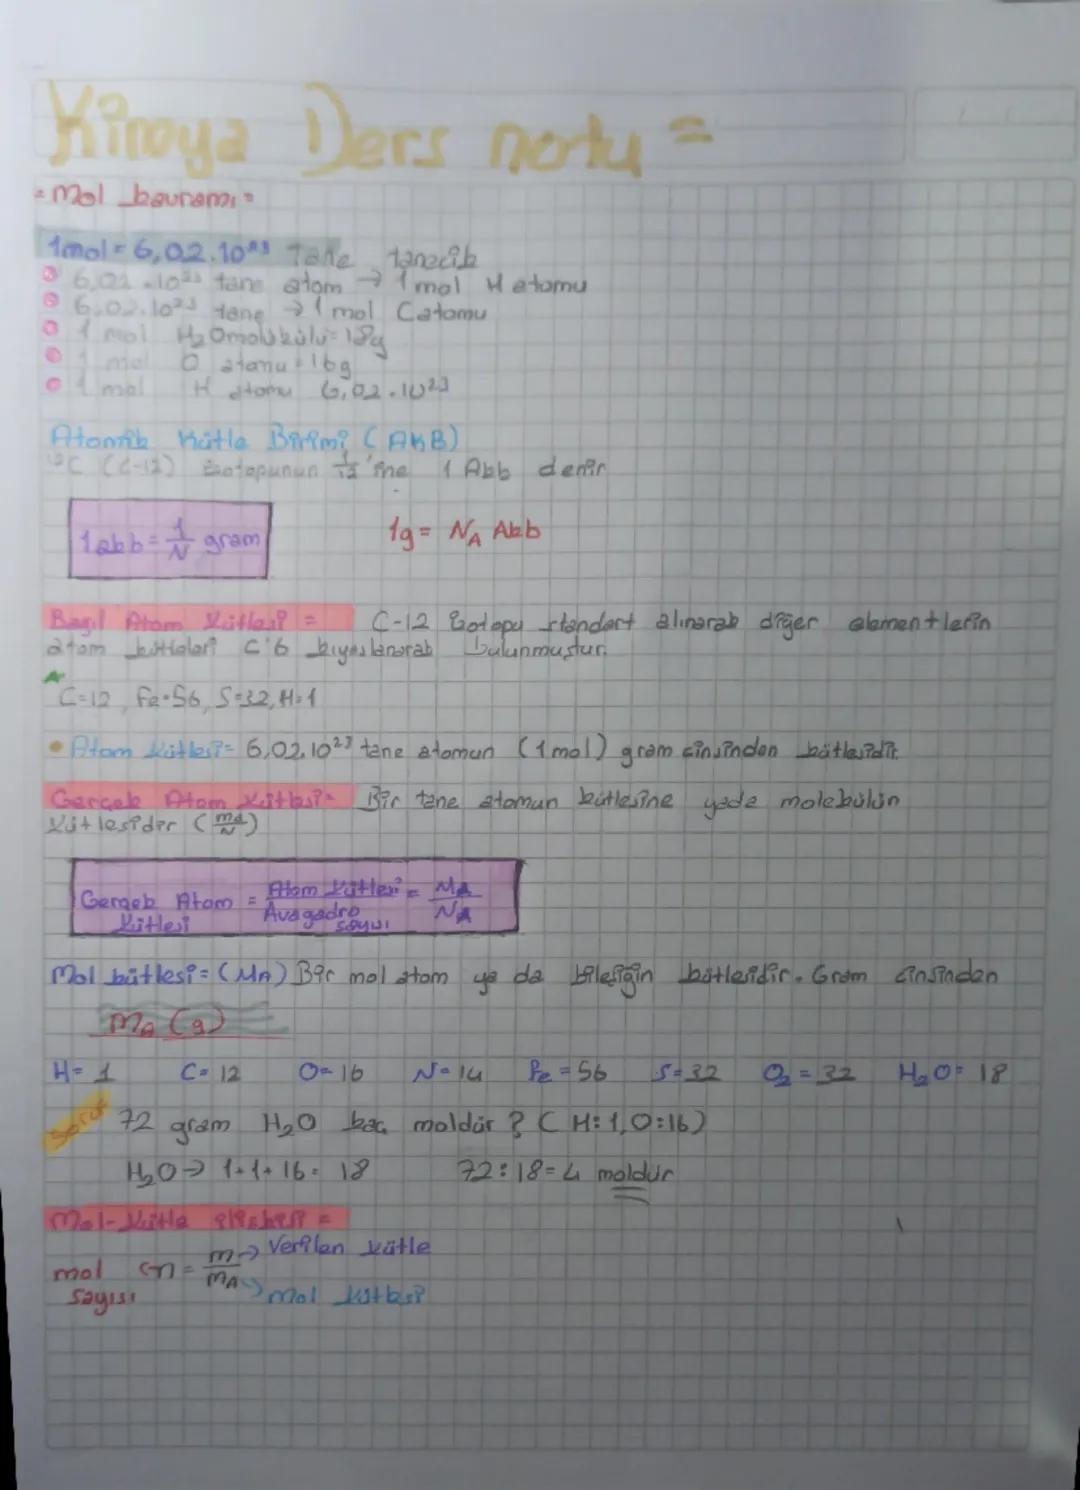 Kimya Ders notu =
= Mol kavramı =
1mol = 6,02.10²³ Tane tanecik
6,02.10²³ tane atom → 1 mol H atomu
6,02.10²³ tane → 1 mol C atomu
1 mol H₂O molekülü = 18g
1 mol O atomu = 16g
1 mol H atomu 6,02.10²³
Atomik Kütle Birimi (AKB)
¹²C (C-12) izotopunun 1/12 'ine 1 Akb denir
1 akb = 1/N gram 1g = N_A Akb
Bağıl Atom Kütlesi = C-12 izotopu standart alınarak diğer elementlerin
atom kütleleri C'6 kıyaslanarak bulunmuştur.
C=12, Fe=56, S=32, H=1
• Atom kütlesi = 6,02.10²³ tane atomun (1mol) gram cinsinden kütlesidir.
Gerçek Atom Kütlesi = Bir tane atomun kütlesine yada molekülün
kütlesidir (mA/N)
Gerçek Atom Kütlesi = Atom kütlesi / Avagadro sayısı = MA/NA
Mol kütlesi = (MA) Bir mol atom ya da bileşiğin kütlesidir. Gram cinsinden
mA (g)
H = 1 C = 12 O = 16 N = 14 Fe = 56 S = 32 O₂ = 32 H₂O = 18
Soru 72 gram H₂O kaç moldür? (H:1, O:16)
H₂O → 1+1+16 = 18 72:18=4 moldür
Mol-Kütle ilişkisi =
mol sayısı n = m/mA → Verilen kütle
→ mol kütlesi